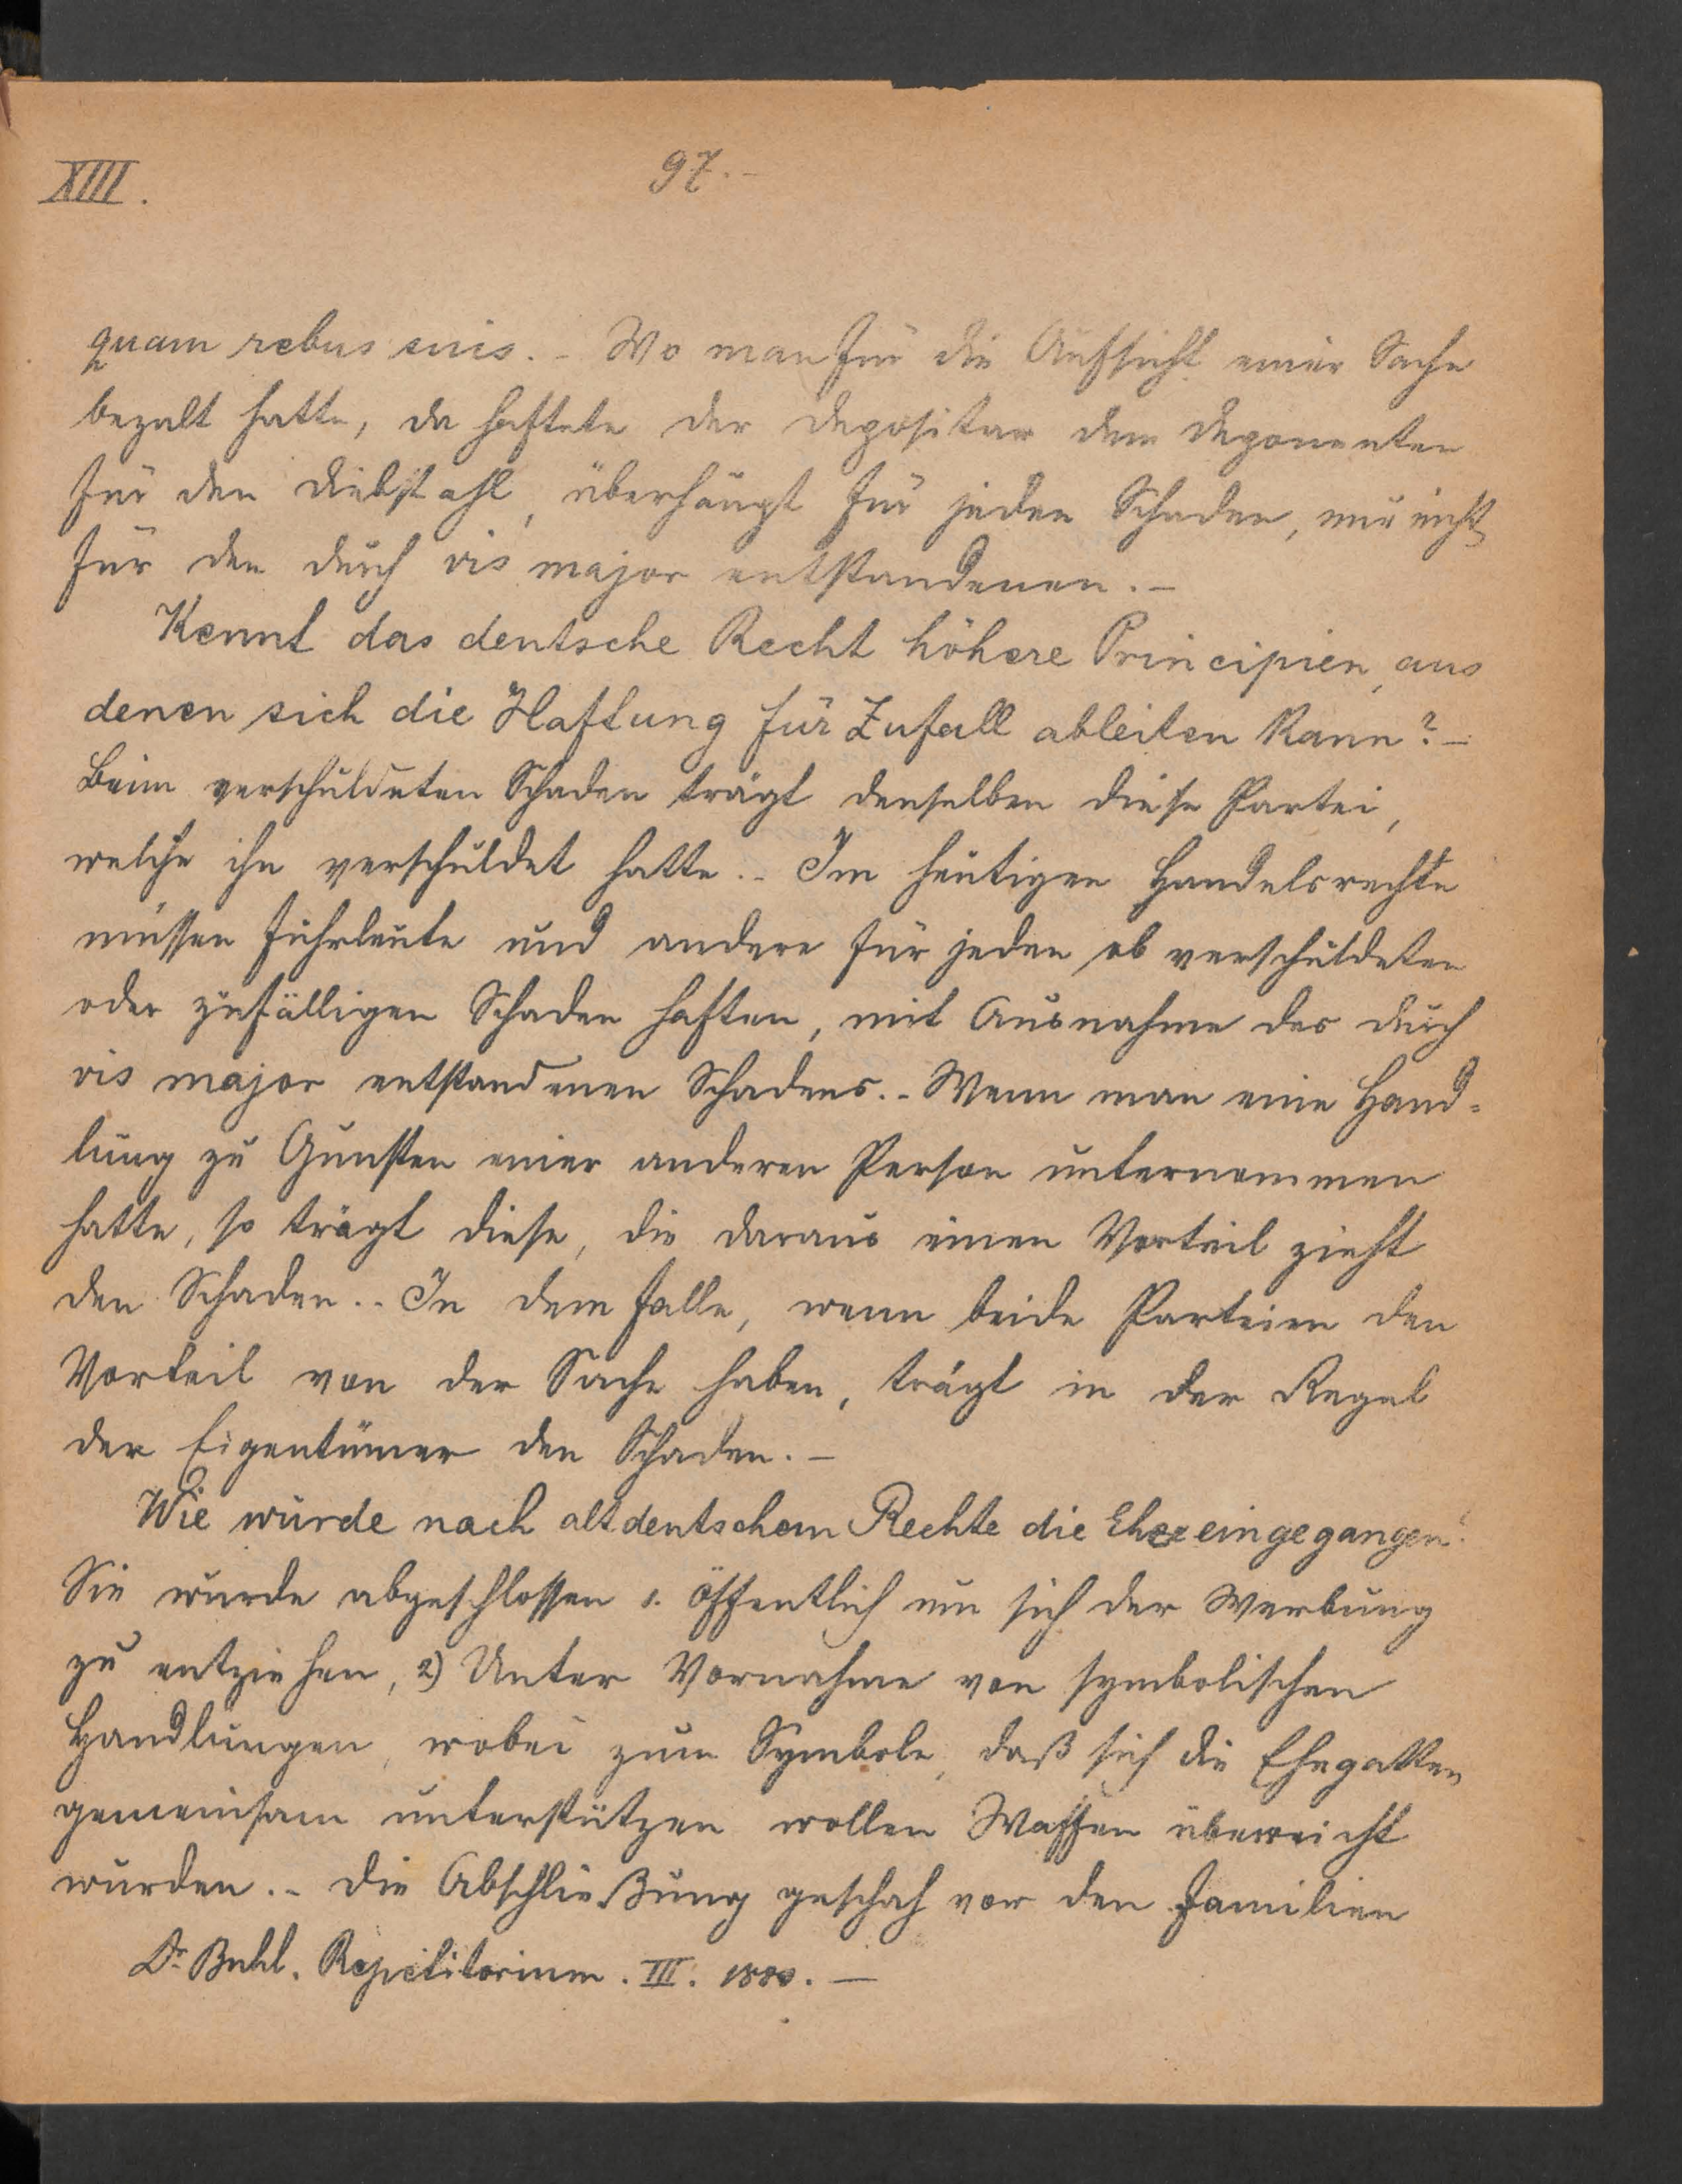 XIII.
97.-
quam rebus suis. - Wo man für die Aufsicht einer Sache
bezalt hatte, da haftete der Depositar dem Deponenten
für den Diebstahl, überhaupt für jeden Schaden, nur nicht
für den durch vis major entstandenen. -
Kennt das deutsche Recht höhere Principien, aus
denen sich die Haftung für Zufall ableiten kann? -
Beim verschuldeten Schaden trägt denselben diese Partei,
welche ihn verschuldet hatte. - Im heutigen Handelsrechte
müssen Fuhrleute und andere für jeden ob verschuldeten
oder zufälligen Schaden haften, mit Ausnahme des durch
vis major entstandenen Schadens. - Wenn man eine Hand-
lung zu Gunsten einer anderen Person unternommen
hatte, so trägt diese, die daraus einen Vorteil zieht
den Schaden. - In dem Falle, wenn beide Parteien den
Vorteil von der Sache haben, trägt in der Regel
der Eigentümer den Schaden. -
Wie wurde nach altdeutschem Rechte die Ehe eingegangen?
Sie wurde abgeschlossen 1. öffentlich um sich der Werbung
zu entziehen, 2) Unter Vornahme von symbolischen
Handlungen, wobei zum Symbole, daß sich die Ehegatten
gemeinsam unterstützen wollen Waffen überreicht
wurden. - Die Abschließung geschah vor den Familien
Dr. Buhl. Repetitorium. III. 1880. -